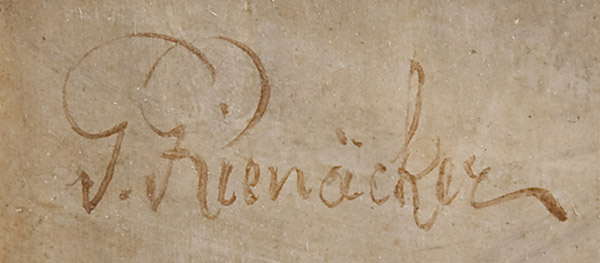 G. Rienäcker